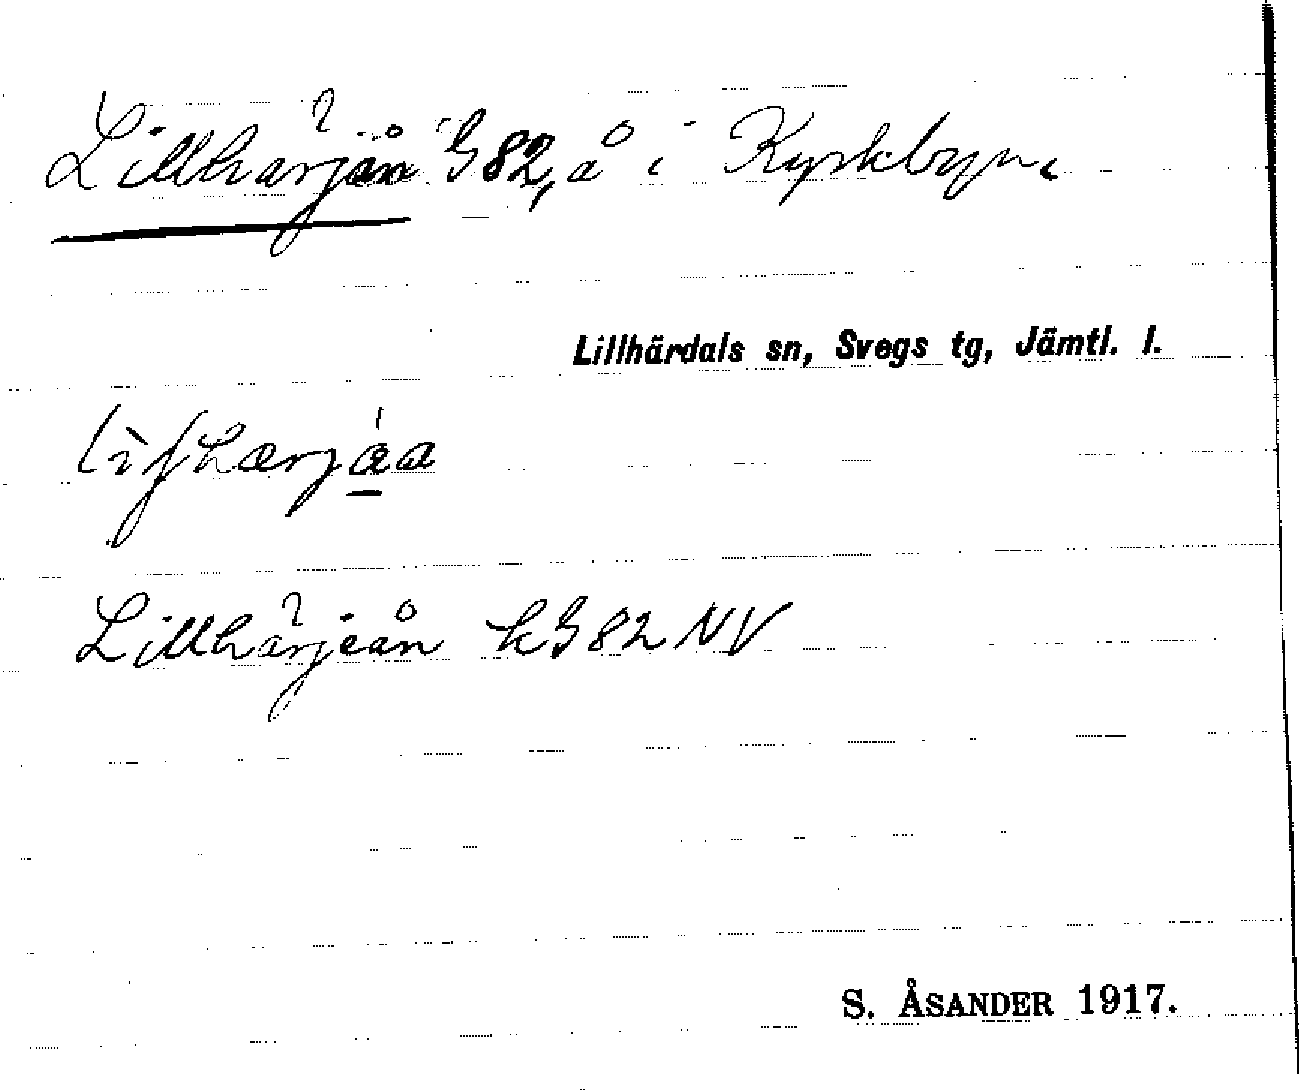 Lillhärjån G82, å i Kyrkbyn.
Lillhärdals sn, Svegs tg, Jämtl. l.
Lillhärjeån kG82NV
S. ÅSANDER 1917.